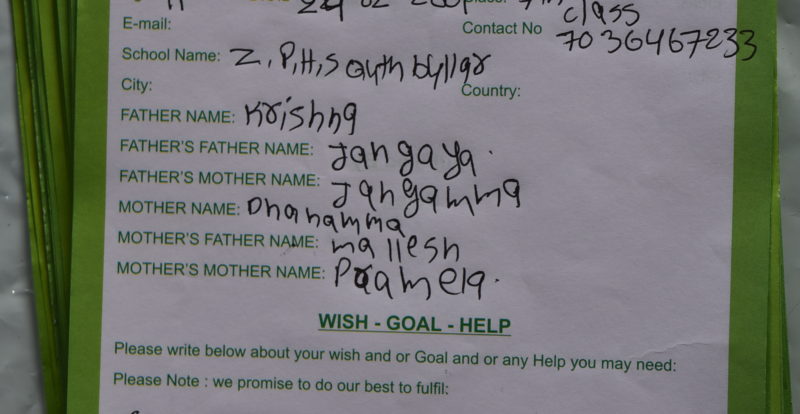 class
E-mail:
Contact No 7036467233
School Name: Z, P, H, S
City:
Country:
FATHER NAME: Krishna
FATHER'S FATHER NAME: Jangaya.
FATHER'S MOTHER NAME: Jangamma
MOTHER NAME: Dhanamma
MOTHER'S FATHER NAME: mallesh
MOTHER'S MOTHER NAME: Pramela.
WISH - GOAL - HELP
Please write below about your wish and or Goal and or any Help you may need:
Please Note : we promise to do our best to fulfil: